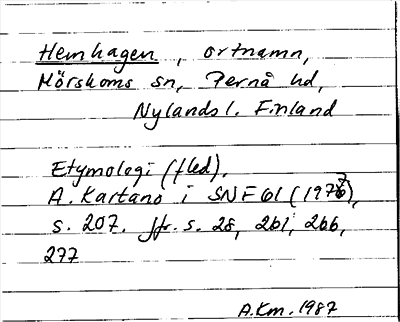 Hemhagen, ortnamn,
Mörskoms sn, Pernå hd,
Nylands l. Finland
Etymologi (fled).
A. Kartano i SNF 61 (1973),
s. 207. Jfr. s. 28, 261, 266,
277
A.Km. 1987